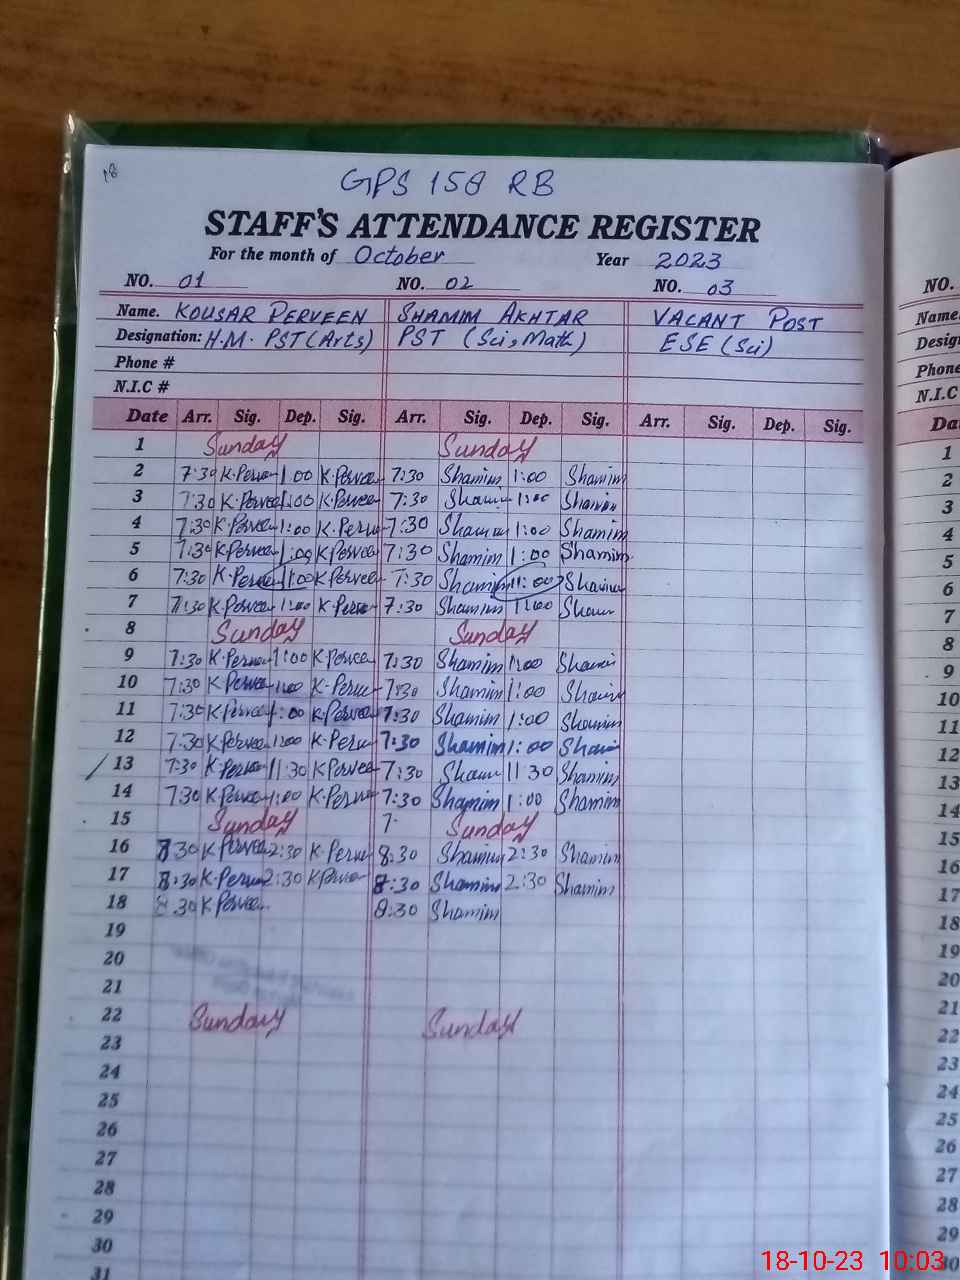 18
GPS 158 RB
STAFF'S ATTENDANCE REGISTER
For the month of October Year 2023
NO. 01 NO. 02 NO. 03 NO.
Name. KOUSAR PERVEEN SHAMIM AKHTAR VACANT POST Name
Designation: H.M. PST (Arts) PST (Sci, Math) ESE (Sci)
Phone # Phone
N.I.C # N.I.C
Date Arr. Sig. Dep. Sig. Arr. Sig. Dep. Sig. Arr. Sig. Dep. Sig.
1 Sunday Sunday 1
2 7:30 K.Perve 1:00 K.Pervee 7:30 Shamim 1:00 Shamim 2
3 7:30 K.Pervee 1:00 K.Pervee 7:30 Shamim 1:00 Shamim 3
4 7:30 K.Pervee 1:00 K.Perve 7:30 Shamim 1:00 Shamim 4
5 7:30 K.Pervee 1:00 K.Pervee 7:30 Shamim 1:00 Shamim 5
6 7:30 K.Pervee 11:00 K.Pervee 7:30 Shamim 11:00 Shamim 6
7 7:30 K.Pervee 1:00 K.Perve 7:30 Shamim 1:00 Sham 7
8 Sunday Sunday 8
9 7:30 K.Perve 1:00 K.Pervee 7:30 Shamim 1:00 Shamim 9
10 7:30 K.Pervee 1:00 K.Perve 7:30 Shamim 1:00 Shamim 10
11 7:30 K.Pervee 1:00 K.Pervee 7:30 Shamim 1:00 Shamim 11
12 7:30 K.Pervee 1:00 K.Perve 7:30 Shamim 1:00 Shamim 12
13 7:30 K.Perve 11:30 K.Pervee 7:30 Sham 11:30 Shamim 13
14 7:30 K.Pervee 1:00 K.Perve 7:30 Shamim 1:00 Shamim 14
15 Sunday 7· Sunday 15
16 8:30 K.Pervee 2:30 K.Perve 8:30 Shamim 2:30 Shamim 16
17 8:30 K.Perve 2:30 K.Pervee 8:30 Shamim 2:30 Shamim 17
18 8:30 K.Pervee 8:30 Shamim 18
19 19
20 20
21 21
22 Sunday Sunday 22
23 23
24 24
25 25
26 26
27 27
28 28
29 29
30 30
31
18-10-23 10:03